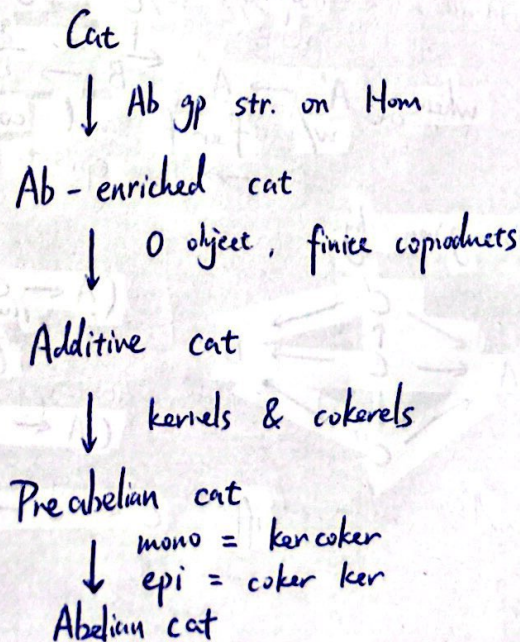 Cat
Ab gp str. on Hom
Ab-enriched cat
0 object, finite coproducts
Additive cat
kernels & cokerels
Preabelian cat
mono = ker coker
epi = coker ker
Abelian cat